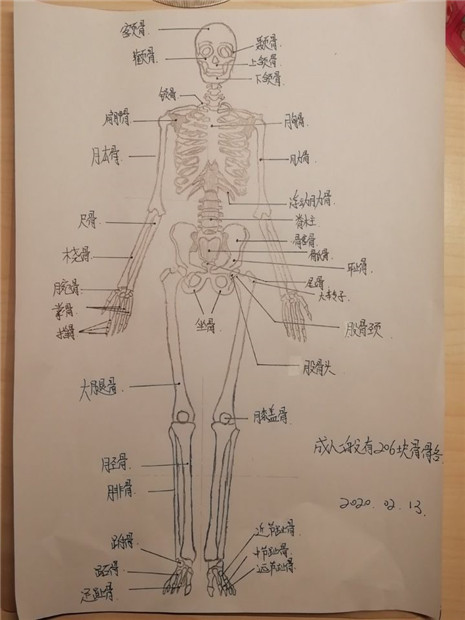 锁骨
肩胛骨
胸骨
肋骨
尺骨
脊柱
髂骨
骶骨
耻骨
尾骨
大转子
桡骨
腕骨
掌骨
指骨
坐骨
股骨颈
股骨头
大腿骨
膝盖骨
胫骨
腓骨
成人一般有206块骨骼
2020.02.13.
跗骨
跖骨
近节趾骨
中节趾骨
远节趾骨
上颌骨
下颌骨